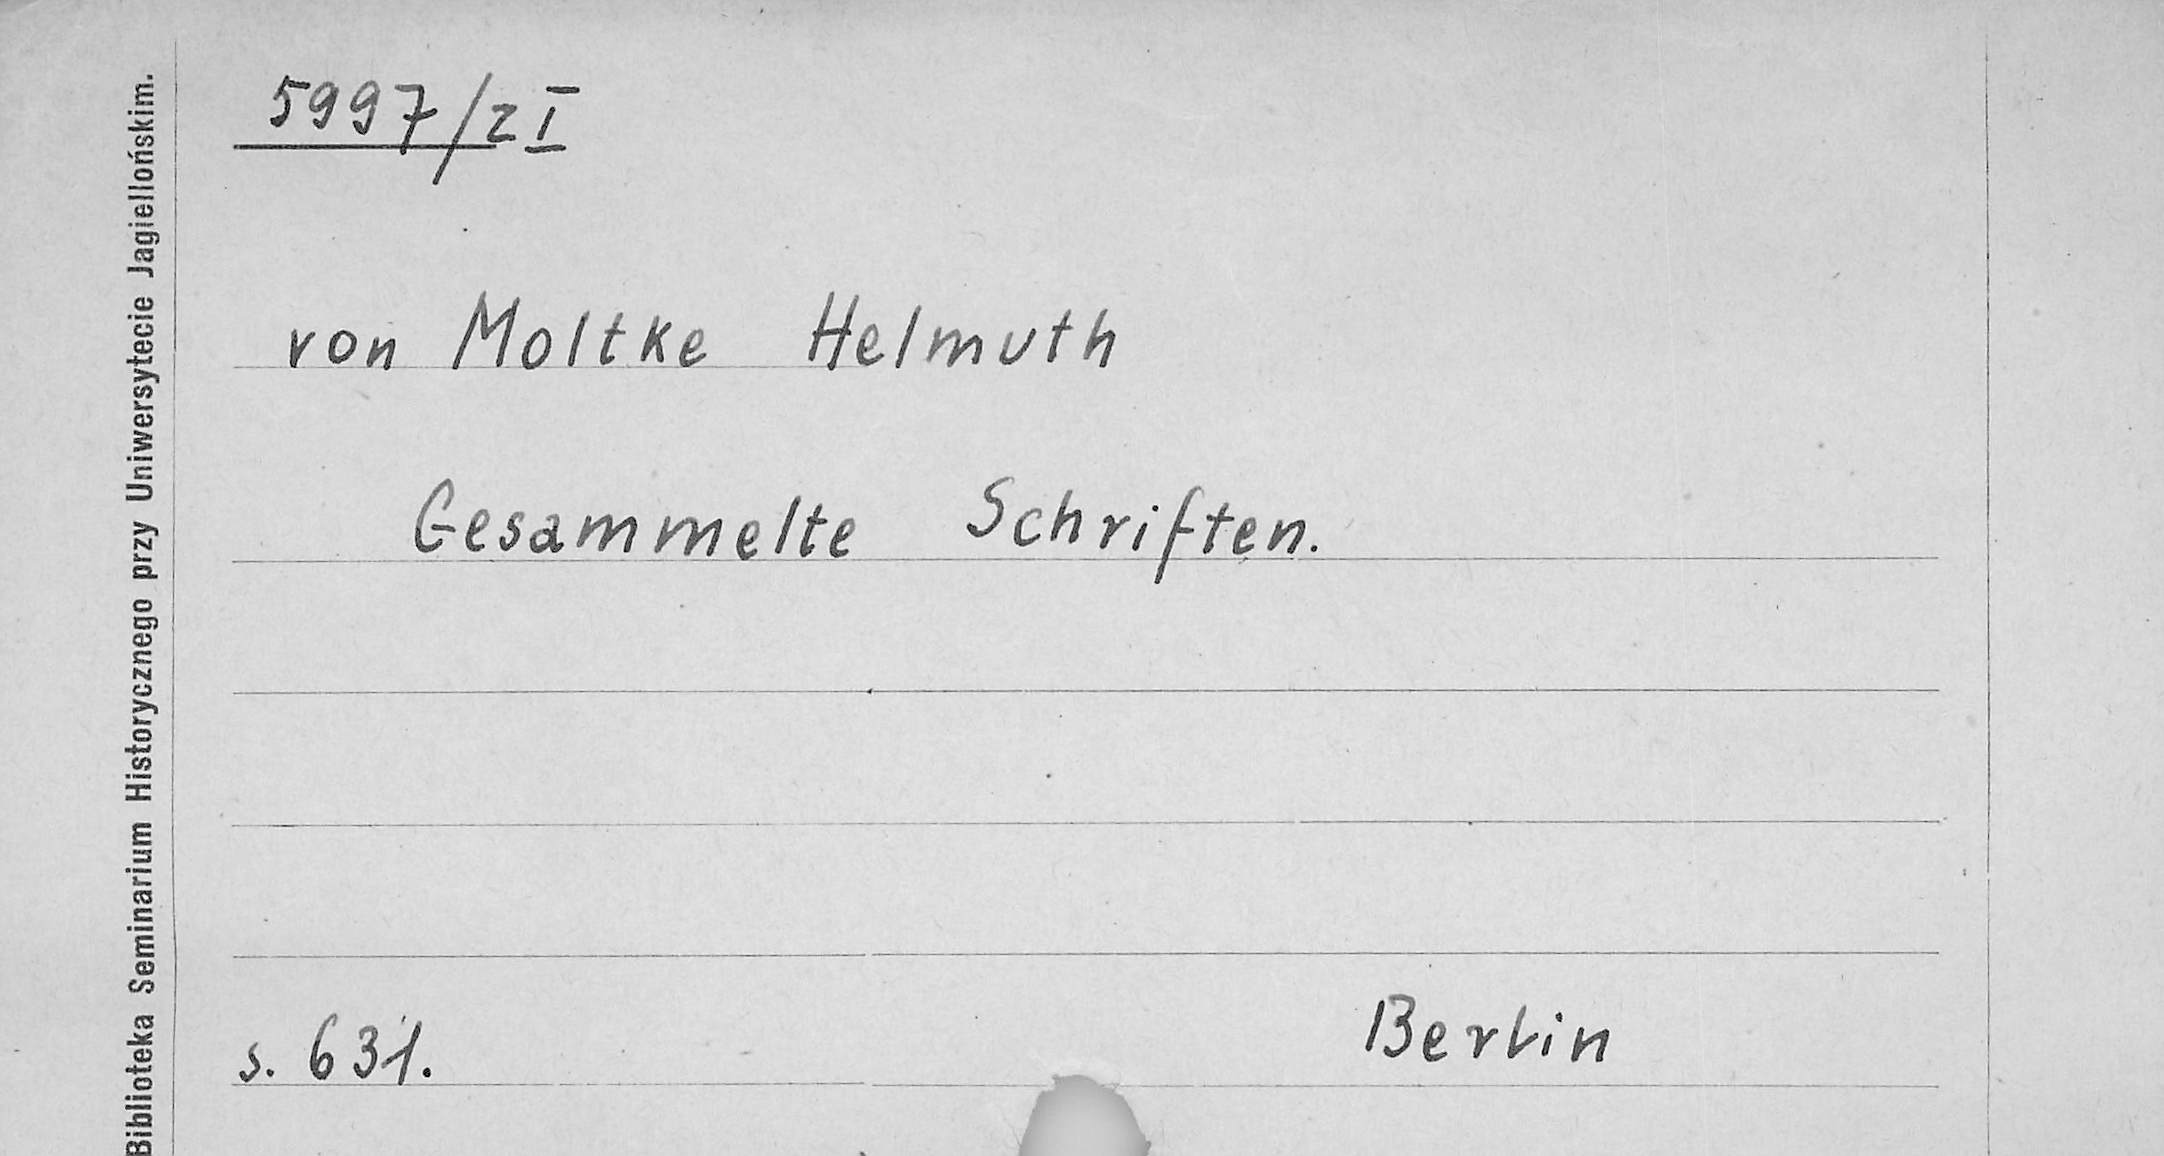 5997/z I
von Moltke Helmuth
Gesammelte Schriften.
s. 631. Berlin
Biblioteka Seminarium Historycznego przy Uniwersytecie Jagiellońskim.